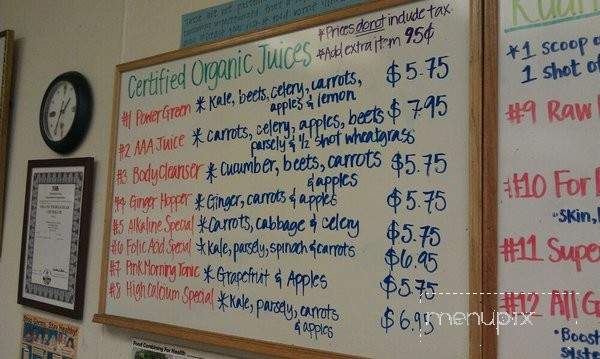 Certified Organic Juices
*Prices do not include tax.
*Add extra item 95¢
#1 Power Green * Kale, beets, celery, carrots, $5.75
apples & lemon
#2 AAA Juice * carrots, celery, apples, beets $7.95
parsely & ½ shot wheatgrass
#3 Body Cleanser * Cucumber, beets, carrots $5.75
& apples
#4 Ginger Hopper * Ginger, carrots & apples $5.75
#5 Alkaline Special * Carrots, cabbage & celery $5.75
#6 Folic Acid Special * Kale, parsely, spinach & carrots $6.95
#7 Pink Morning Tonic * Grapefruit & Apples $5.75
#8 High Calcium Special * Kale, parsely, carrots $6.95
& apples
*1 scoop o
1 shot of
#9 Raw
#10 For
*Skin,
#11 Supe
#12 All G
*Boost
Food Combining For Health
menupix